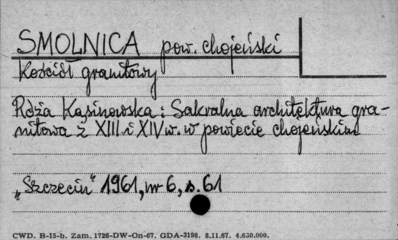 SMOLNICA pow. chojeński
Kościół granitowy
Róża Kąsinowska: Sakralna architektura gra-
nitowa z XIII i XIV w. w powiecie chojeńskim
„Szczecin" 1961, nr 6, s. 61
CWD. B-15-b. Zam. 1726-DW-On-67. GDA-3198. 8.11.67. 4.650.000.